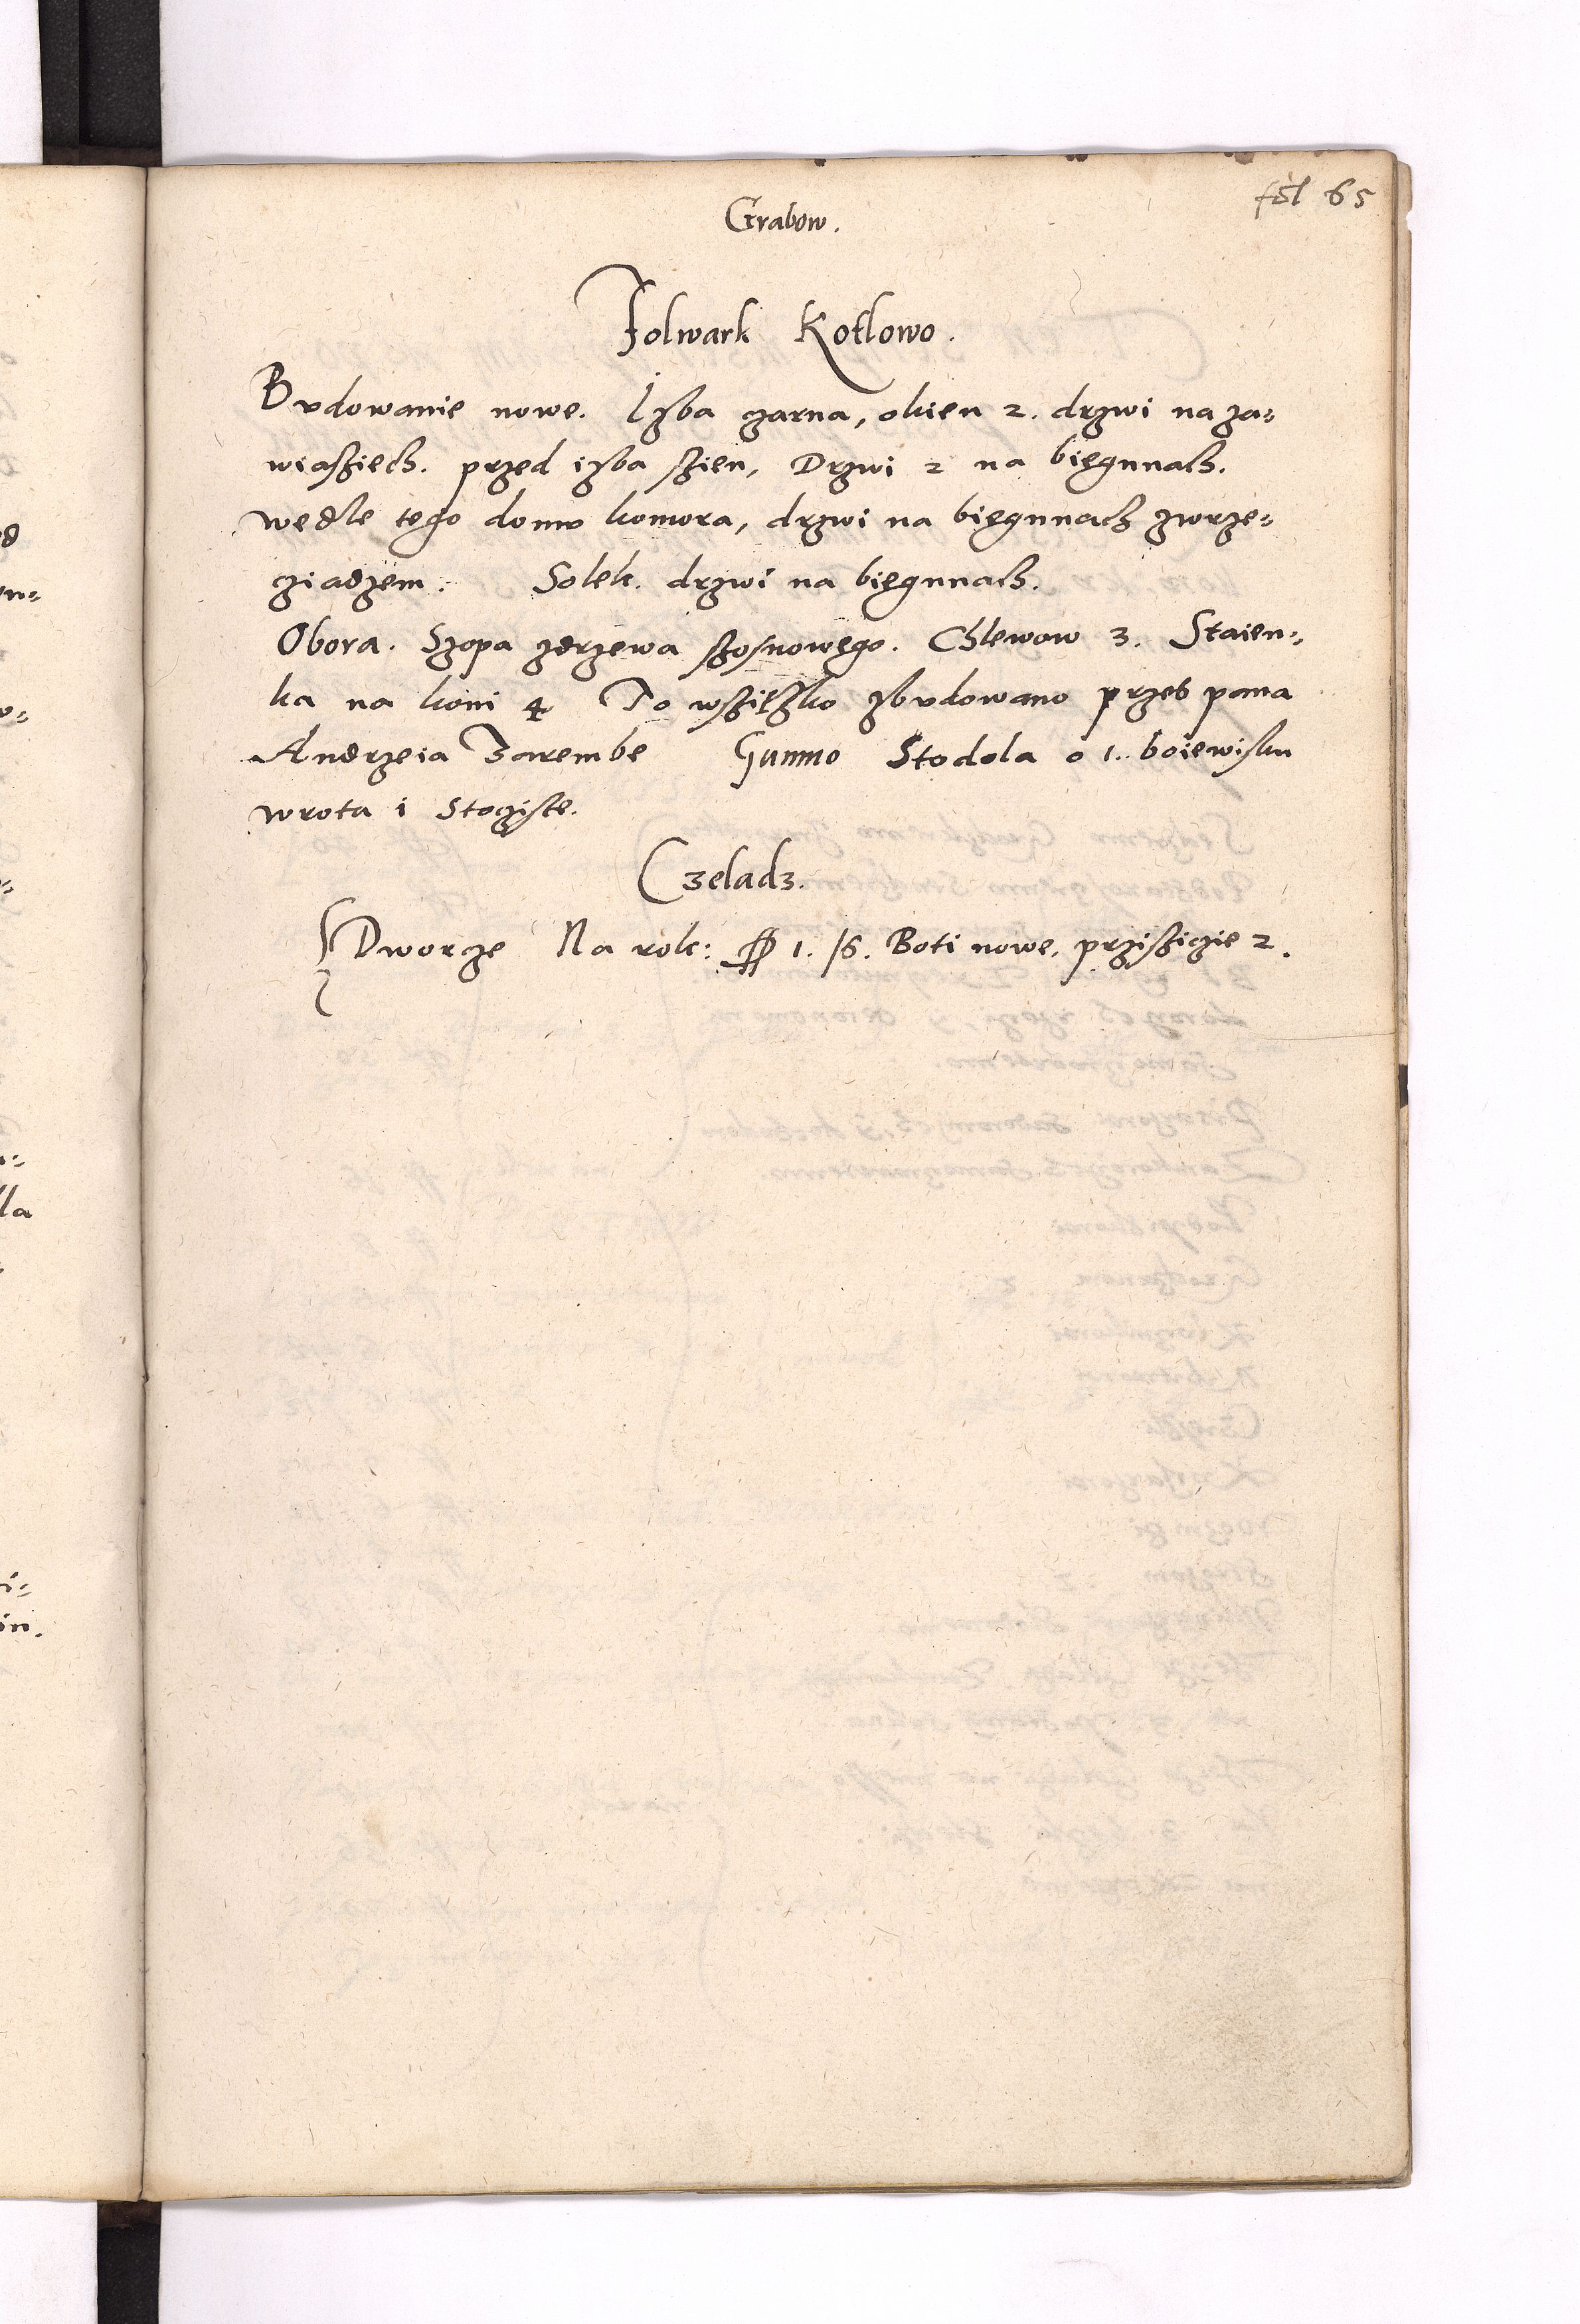 fol 65
Grabow.
Folwark Kotlowo.
Budowanie nowe. Izba czarna, okien 2. drzwi na za-
wiasziech. przed izba szien, Drzwi 2 na biegunach.
wedle tego domu komora, drzwi na biegunach zwrze-
cziadzem. Solek. drzwi na biegunach.
Obora. Szopa zdrzewa szosnowego. Chlewow 3. Staien-
ka na koni 4 To wszitko zbudowano przes pana
Andrzeia Zarembe Gumno Stodola o 1. boiewisku
wrota i Stogiste.
Czeladz.
Dworcze Na rok: 1. /6. Boti nowe. przisziczie 2.